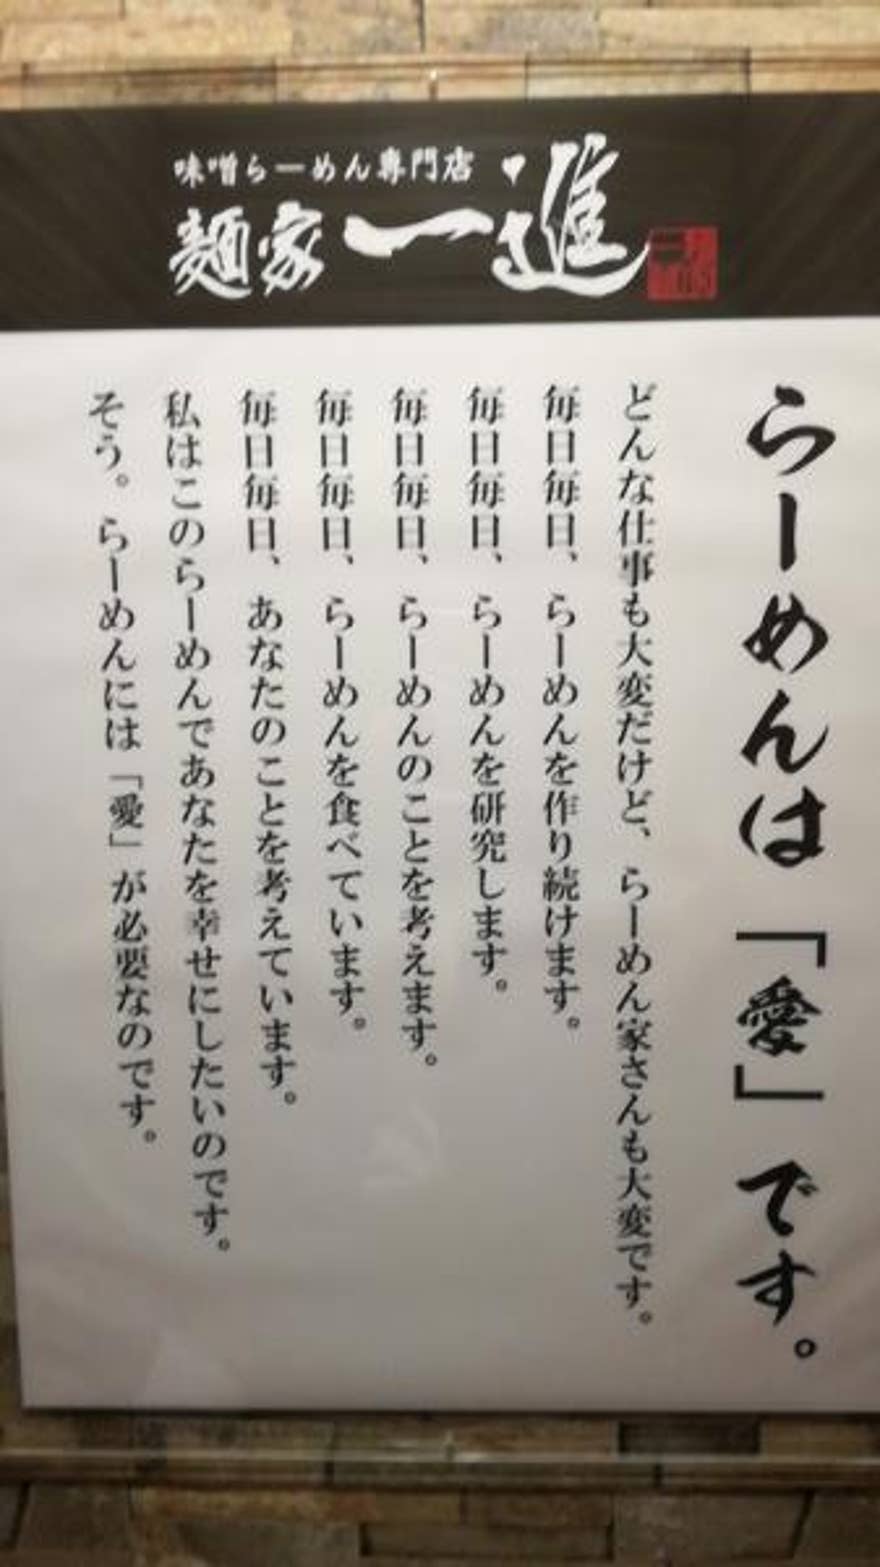 味噌らーめん専門店
麺家一進
らーめんは「愛」です。
どんな仕事も大変だけど、らーめん家さんも大変です。
毎日毎日、らーめんを作り続けます。
毎日毎日、らーめんを研究します。
毎日毎日、らーめんのことを考えます。
毎日毎日、らーめんを食べています。
毎日毎日、あなたのことを考えています。
私はこのらーめんであなたを幸せにしたいのです。
そう。らーめんには「愛」が必要なのです。